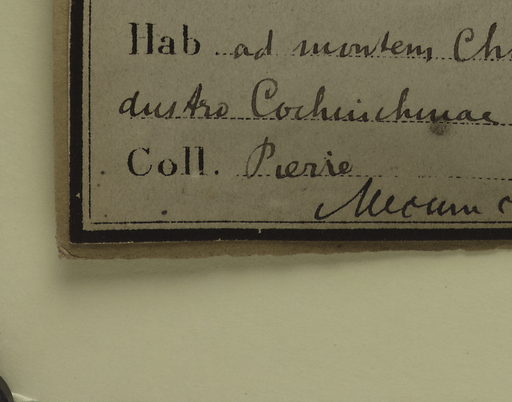 Hab ad montem Ch
dustro Cochinchinae
Coll. Pierre
Mecum c